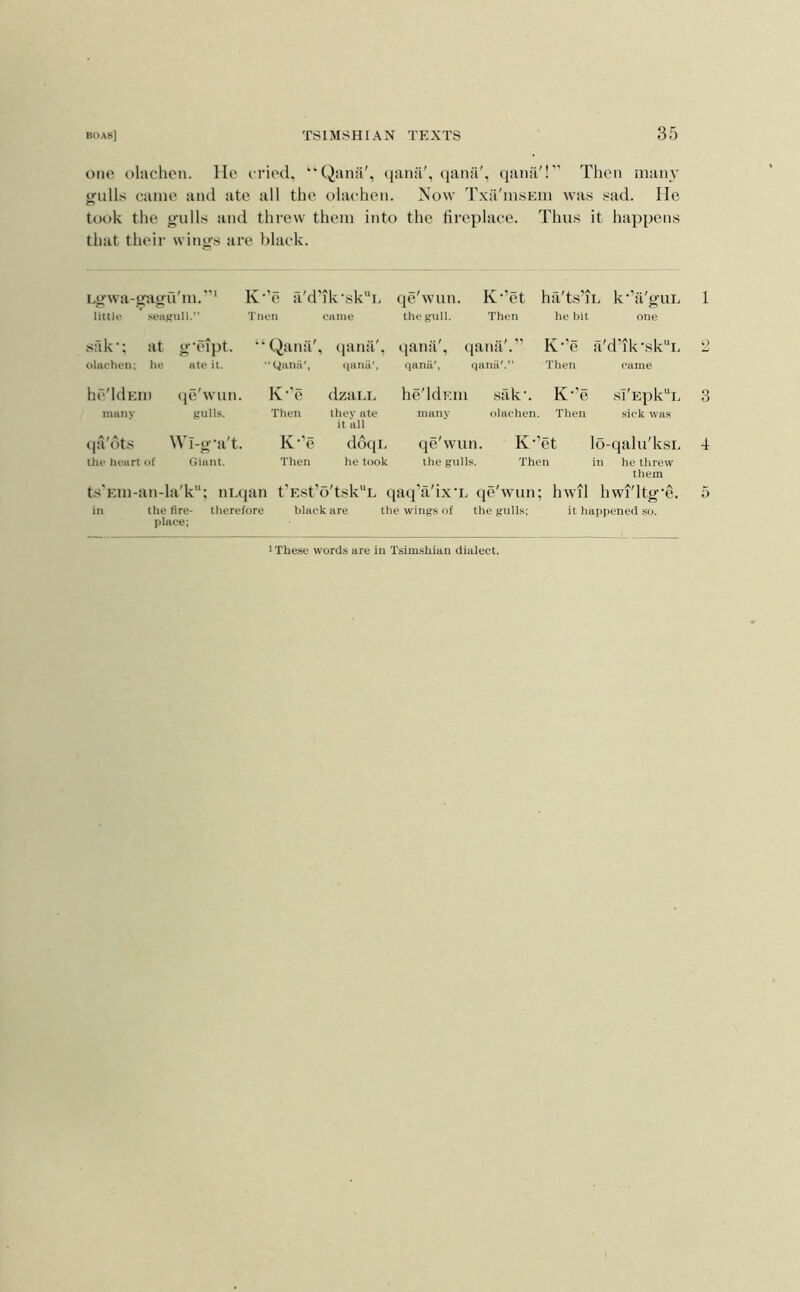 BOAS] TSIMSHIAN TEXTS 35
one olachen. He cried, “Qanä', qanä', qanä', qanä'!” Then many
gulls came and ate all the olachen. Now Txä'msEm was sad. He
took the gulls and threw them into the fireplace. Thus it happens
that their wings are black.
ʟgwa-gagū'm.”¹ K·'ē ā'd'ik·skᵘʟ qē'wun. K·'ēt hā'ts'īʟ k·'ā'guʟ 1
little seagull.” Then came the gull. Then he bit one
sāk·; at g·ēîpt. “Qanä', qanä', qanä', qanä'.” K·'ē ā'd'ik·skᵘʟ 2
olachen; he ate it. “Qanä', qanä', qanä', qanä'.” Then came
hē'ldEm qē'wun. K·'ē dzaʟʟ hē'ldEm sāk·. K·'ē sī'Epkᵘʟ 3
many gulls. Then they ate many olachen. Then sick was
it all
qā'ōts Wī-g·a't. K·'ē dôqʟ qē'wun. K·'ēt lō-qalu'ksʟ 4
the heart of Giant. Then he took the gulls. Then in he threw
them
ts'Em-an-la'kᵘ; nʟqan t'Est'ō'tskᵘʟ qaq'ā'ix·ʟ qē'wun; hwîl hwī'ltg·ê. 5
in the fire- therefore black are the wings of the gulls; it happened so.
place;
¹ These words are in Tsimshian dialect.